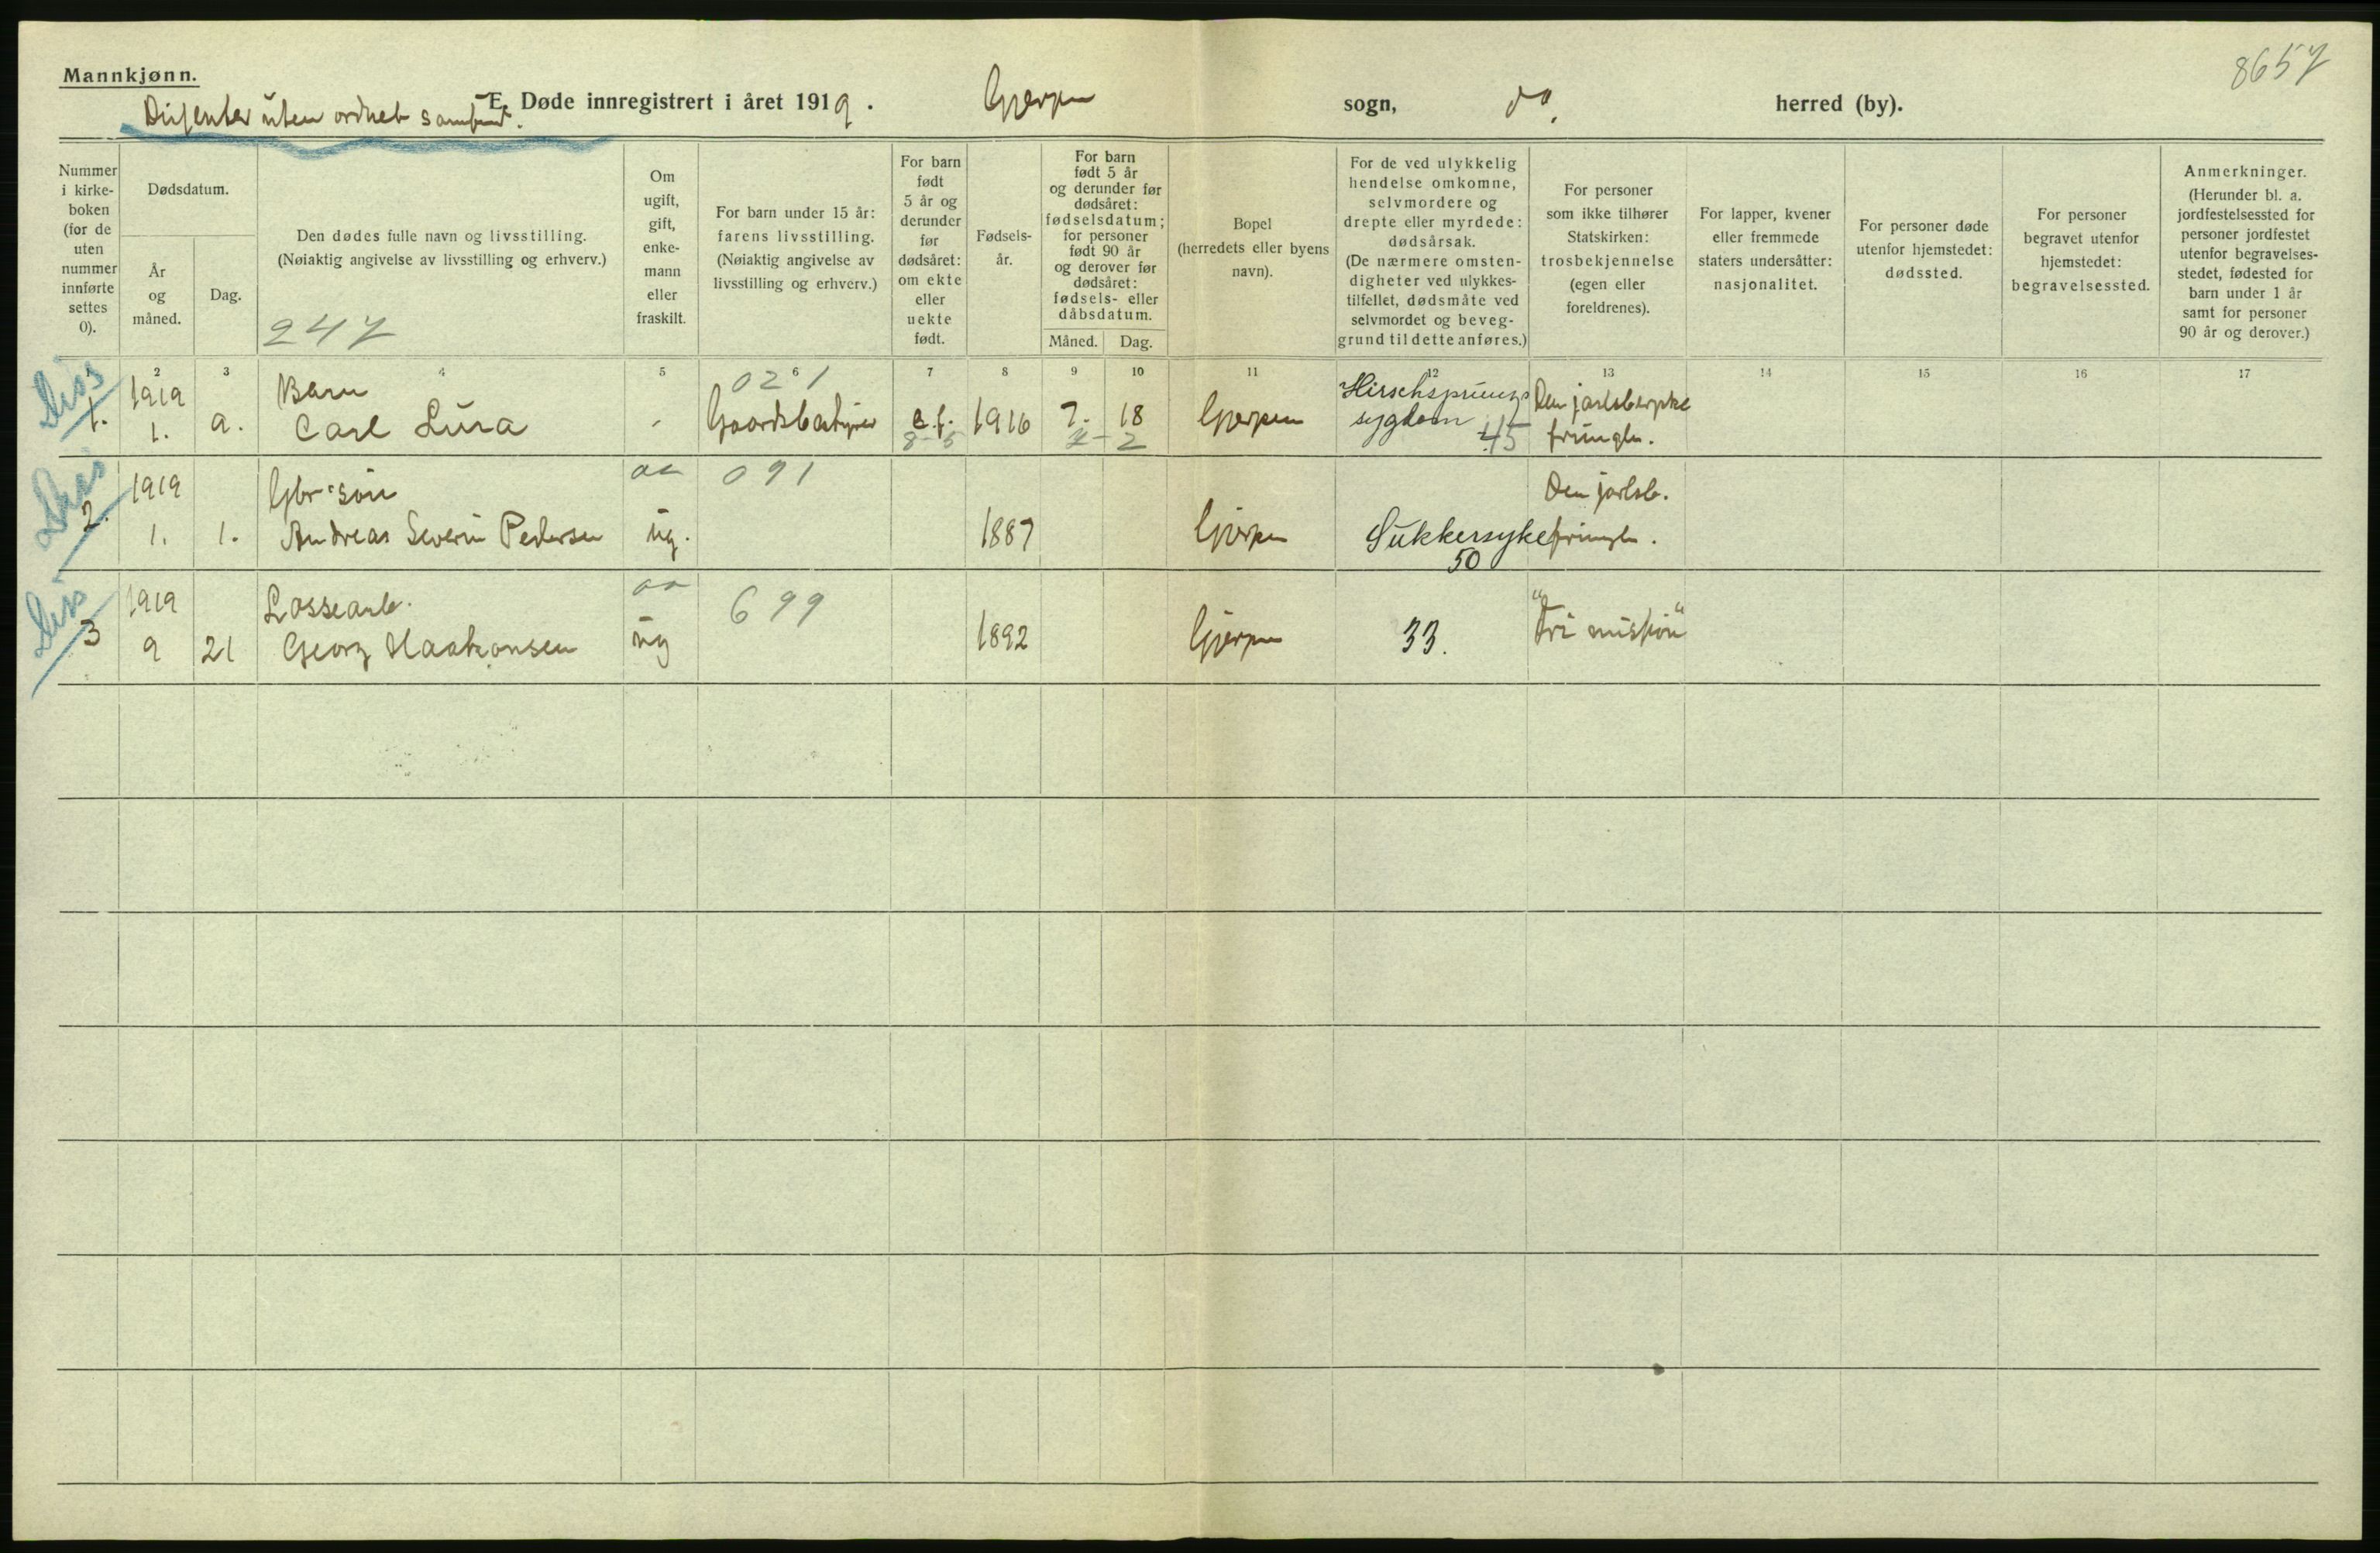 8657
Mannkjønn.
Disenter uten ordnet samfund.
E. Døde innregistrert i året 1919. Gjerpen sogn, do. herred (by).
Nummer
i kirke-
boken
(for de
uten
nummer
innførte
settes
0).
Dødsdatum.
År
og
måned.
Dag.
Den dødes fulle navn og livsstilling.
(Nøiaktig angivelse av livsstilling og erhverv.)
247
Om
ugift,
gift,
enke-
mann
eller
fraskilt.
For barn under 15 år:
farens livsstilling.
(Nøiaktig angivelse av
livsstilling og erhverv.)
For barn
født
5 år og
derunder
før
dødsåret:
om ekte
eller
uekte
født.
Fødsels-
år.
For barn
født 5 år
og derunder før
dødsåret:
fødselsdatum;
for personer
født 90 år
og derover før
dødsåret:
fødsels- eller
dåbsdatum.
Måned. Dag.
Bopel
(herredets eller byens
navn).
For de ved ulykkelig
hendelse omkomne,
selvmordere og
drepte eller myrdede:
dødsårsak.
(De nærmere omsten-
digheter ved ulykkes-
tilfellet, dødsmåte ved
selvmordet og beveg-
grund til dette anføres.)
For personer
som ikke tilhører
Statskirken:
trosbekjennelse
(egen eller
foreldrenes).
For lapper, kvener
eller fremmede
staters undersåtter:
nasjonalitet.
For personer døde
utenfor hjemstedet:
dødssted.
For personer
begravet utenfor
hjemstedet:
begravelsessted.
Anmerkninger.
(Herunder bl. a.
jordfestelsessted for
personer jordfestet
utenfor begravelses-
stedet, fødested for
barn under 1 år
samt for personer
90 år og derover.)
1 2 3 4 5 6 7 8 9 10 11 12 13 14 15 16 17
Diss
1919 Barn 021 Hirschsprungs Den jarlsbergske
1. 1. 9. Carl Lura - Gaardsbestyrer e.f. 1916 7. 18 Gjerpen sygdom 45 frimgh.
8-5 2-2
Diss
1919 Gbr. søn 091 Den jarlsb.
2. 1. 1. Andreas Severin Pedersen ug. 1887 Gjerpen Sukkersyke frimgh.
50
Diss
1919 Lossearb. 699
3 9 21 Georg Haakonsen ug 1892 Gjerpen 33. "Fri mission"